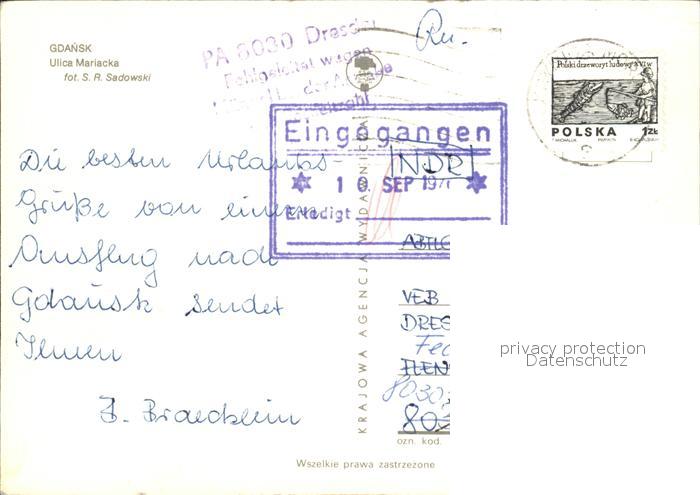 GDAŃSK
Ulica Mariacka
fot. S. R. Sadowski
PA 8030 Dresden
Fehlgeleitet wegen
Ru.
Eingegangen
NDR
10. SEP 197
Erledigt
Polski drzeworyt ludowy XVI w
POLSKA 1 ZŁ
Die besten Urlaubs
Grüße von einem
Ausflug nach
Gdańsk sendet
Ihnen
KRAJOWA AGENCJA WYDAWNICZA
VEB
DRES
8030
802
ozn. kod.
privacy protection
Datenschutz
Wszelkie prawa zastrzeżone